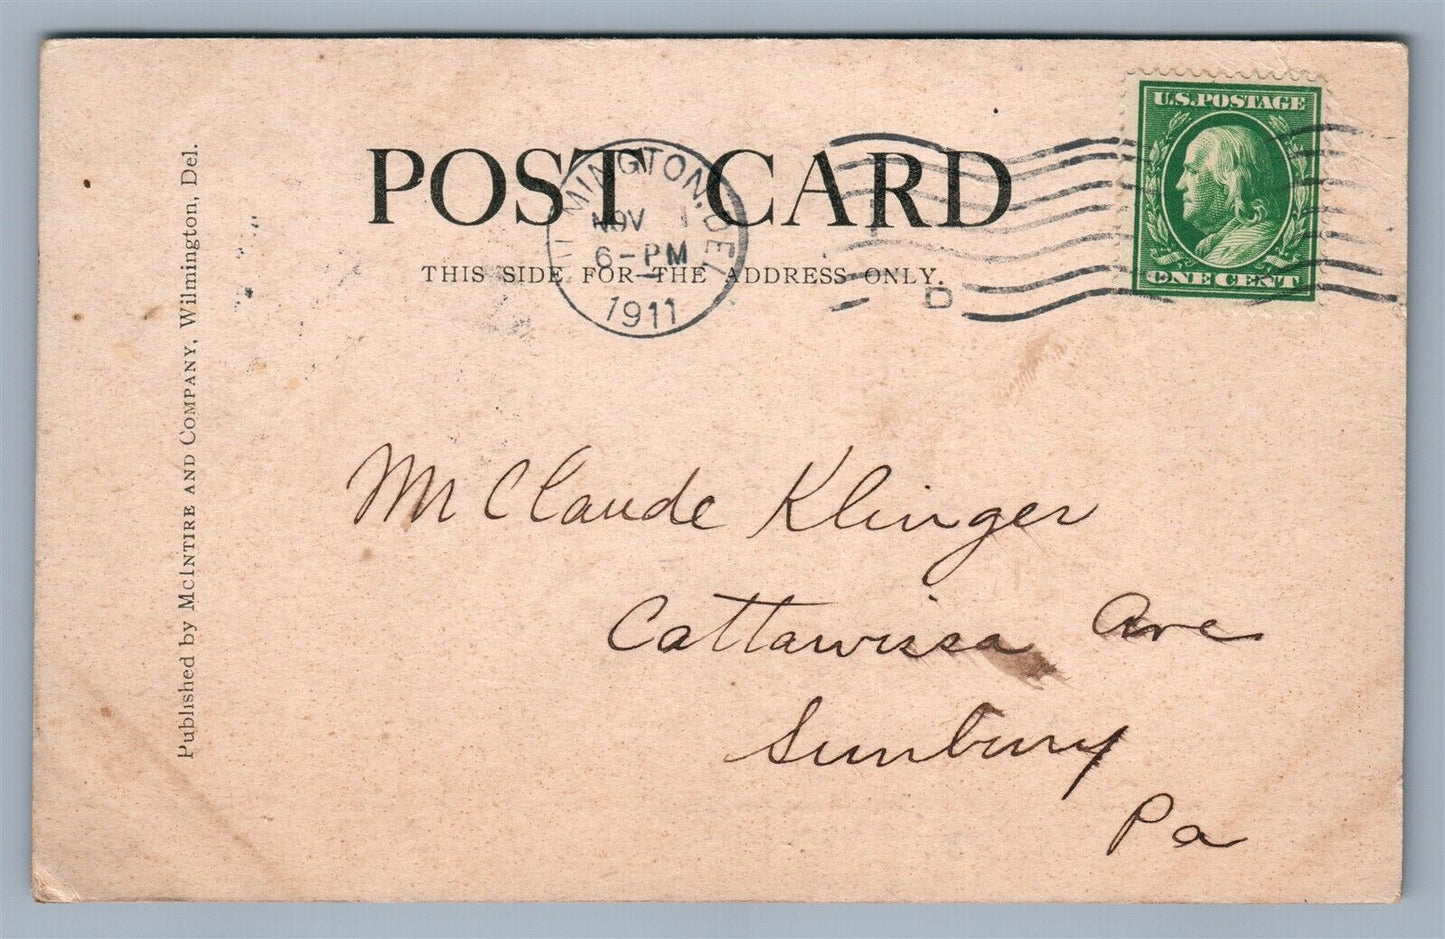 POST CARD
THIS SIDE FOR THE ADDRESS ONLY.
WILMINGTON, DEL.
NOV 1
6-PM
1911
D
U.S. POSTAGE
ONE CENT
Published by MCINTIRE AND COMPANY, Wilmington, Del.
Mr Claude Klinger
Cattawissa Ave
Sunbury
Pa